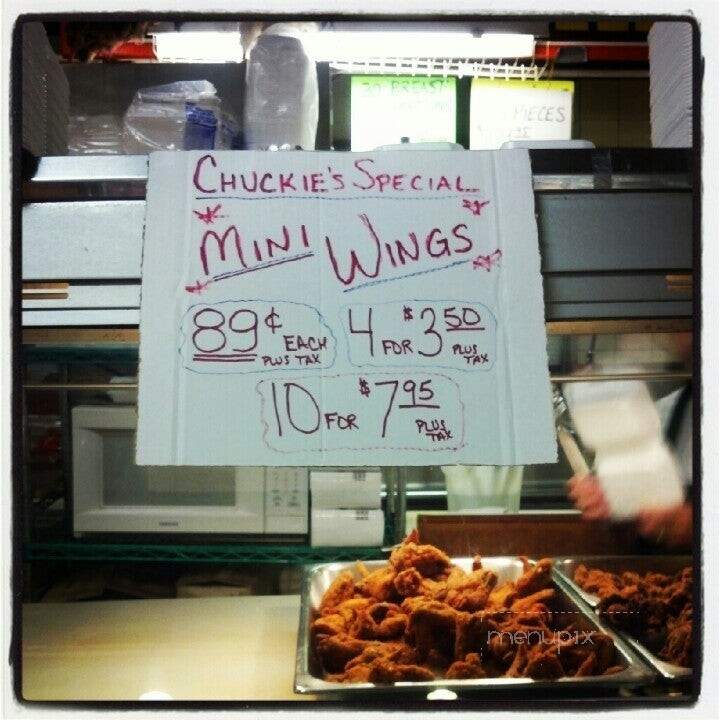 20 BREAST
PIECES
CHUCKIE'S SPECIAL..
MINI WINGS
89¢ EACH PLUS TAX
4 FOR $3.50 PLUS TAX
10 FOR $7.95 PLUS TAX
menupix